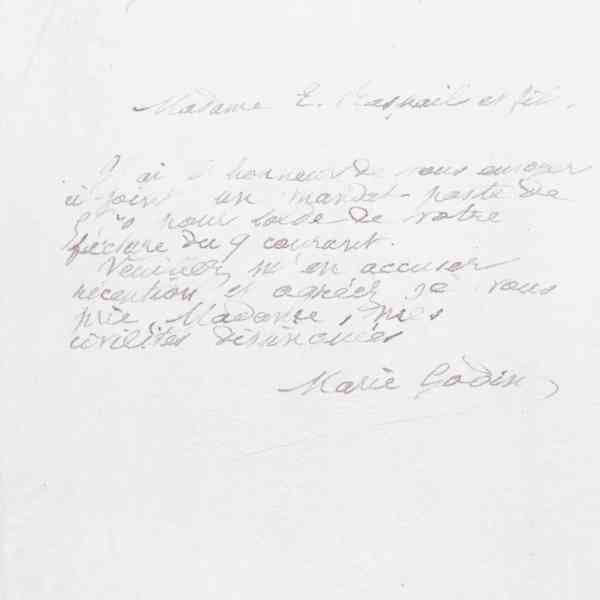 Madame E. Raspail et fils.
J'ai l'honneur de vous envoyer
ci-joint un mandat-poste de
pour solde de votre
facture du 9 courant.
Veuillez m'en accuser
réception et agréez, je vous
prie, Madame, mes
civilités distinguées
Marie Godin